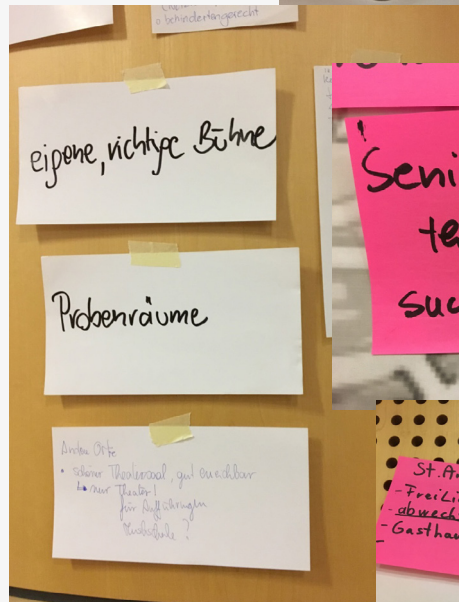 behindertengerecht
eigene, richtige Bühne
Probenräume
Andere Orte
• schöner Theatersaal, gut erreichbar
↳ nur Theater!
für Aufführungen
?
Seni
te
suc
St. A
- FreiLi
- abwech
- Gasthau